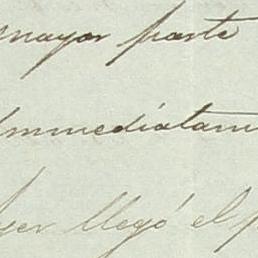 mayor parte
Immediatam
Ayer llegó el p